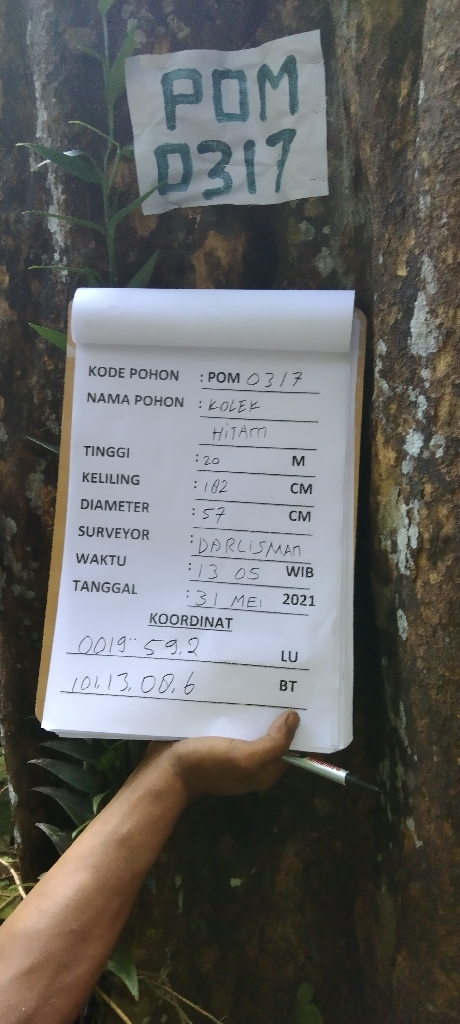 POM
0317
KODE POHON : POM 0317
NAMA POHON : KOLEK
HITAM
TINGGI : 20 M
KELILING : 182 CM
DIAMETER : 57 CM
SURVEYOR : DARLISMAN
WAKTU : 13 05 WIB
TANGGAL : 31 MEI 2021
KOORDINAT
0019" 59.2 LU
101.13.08.6 BT